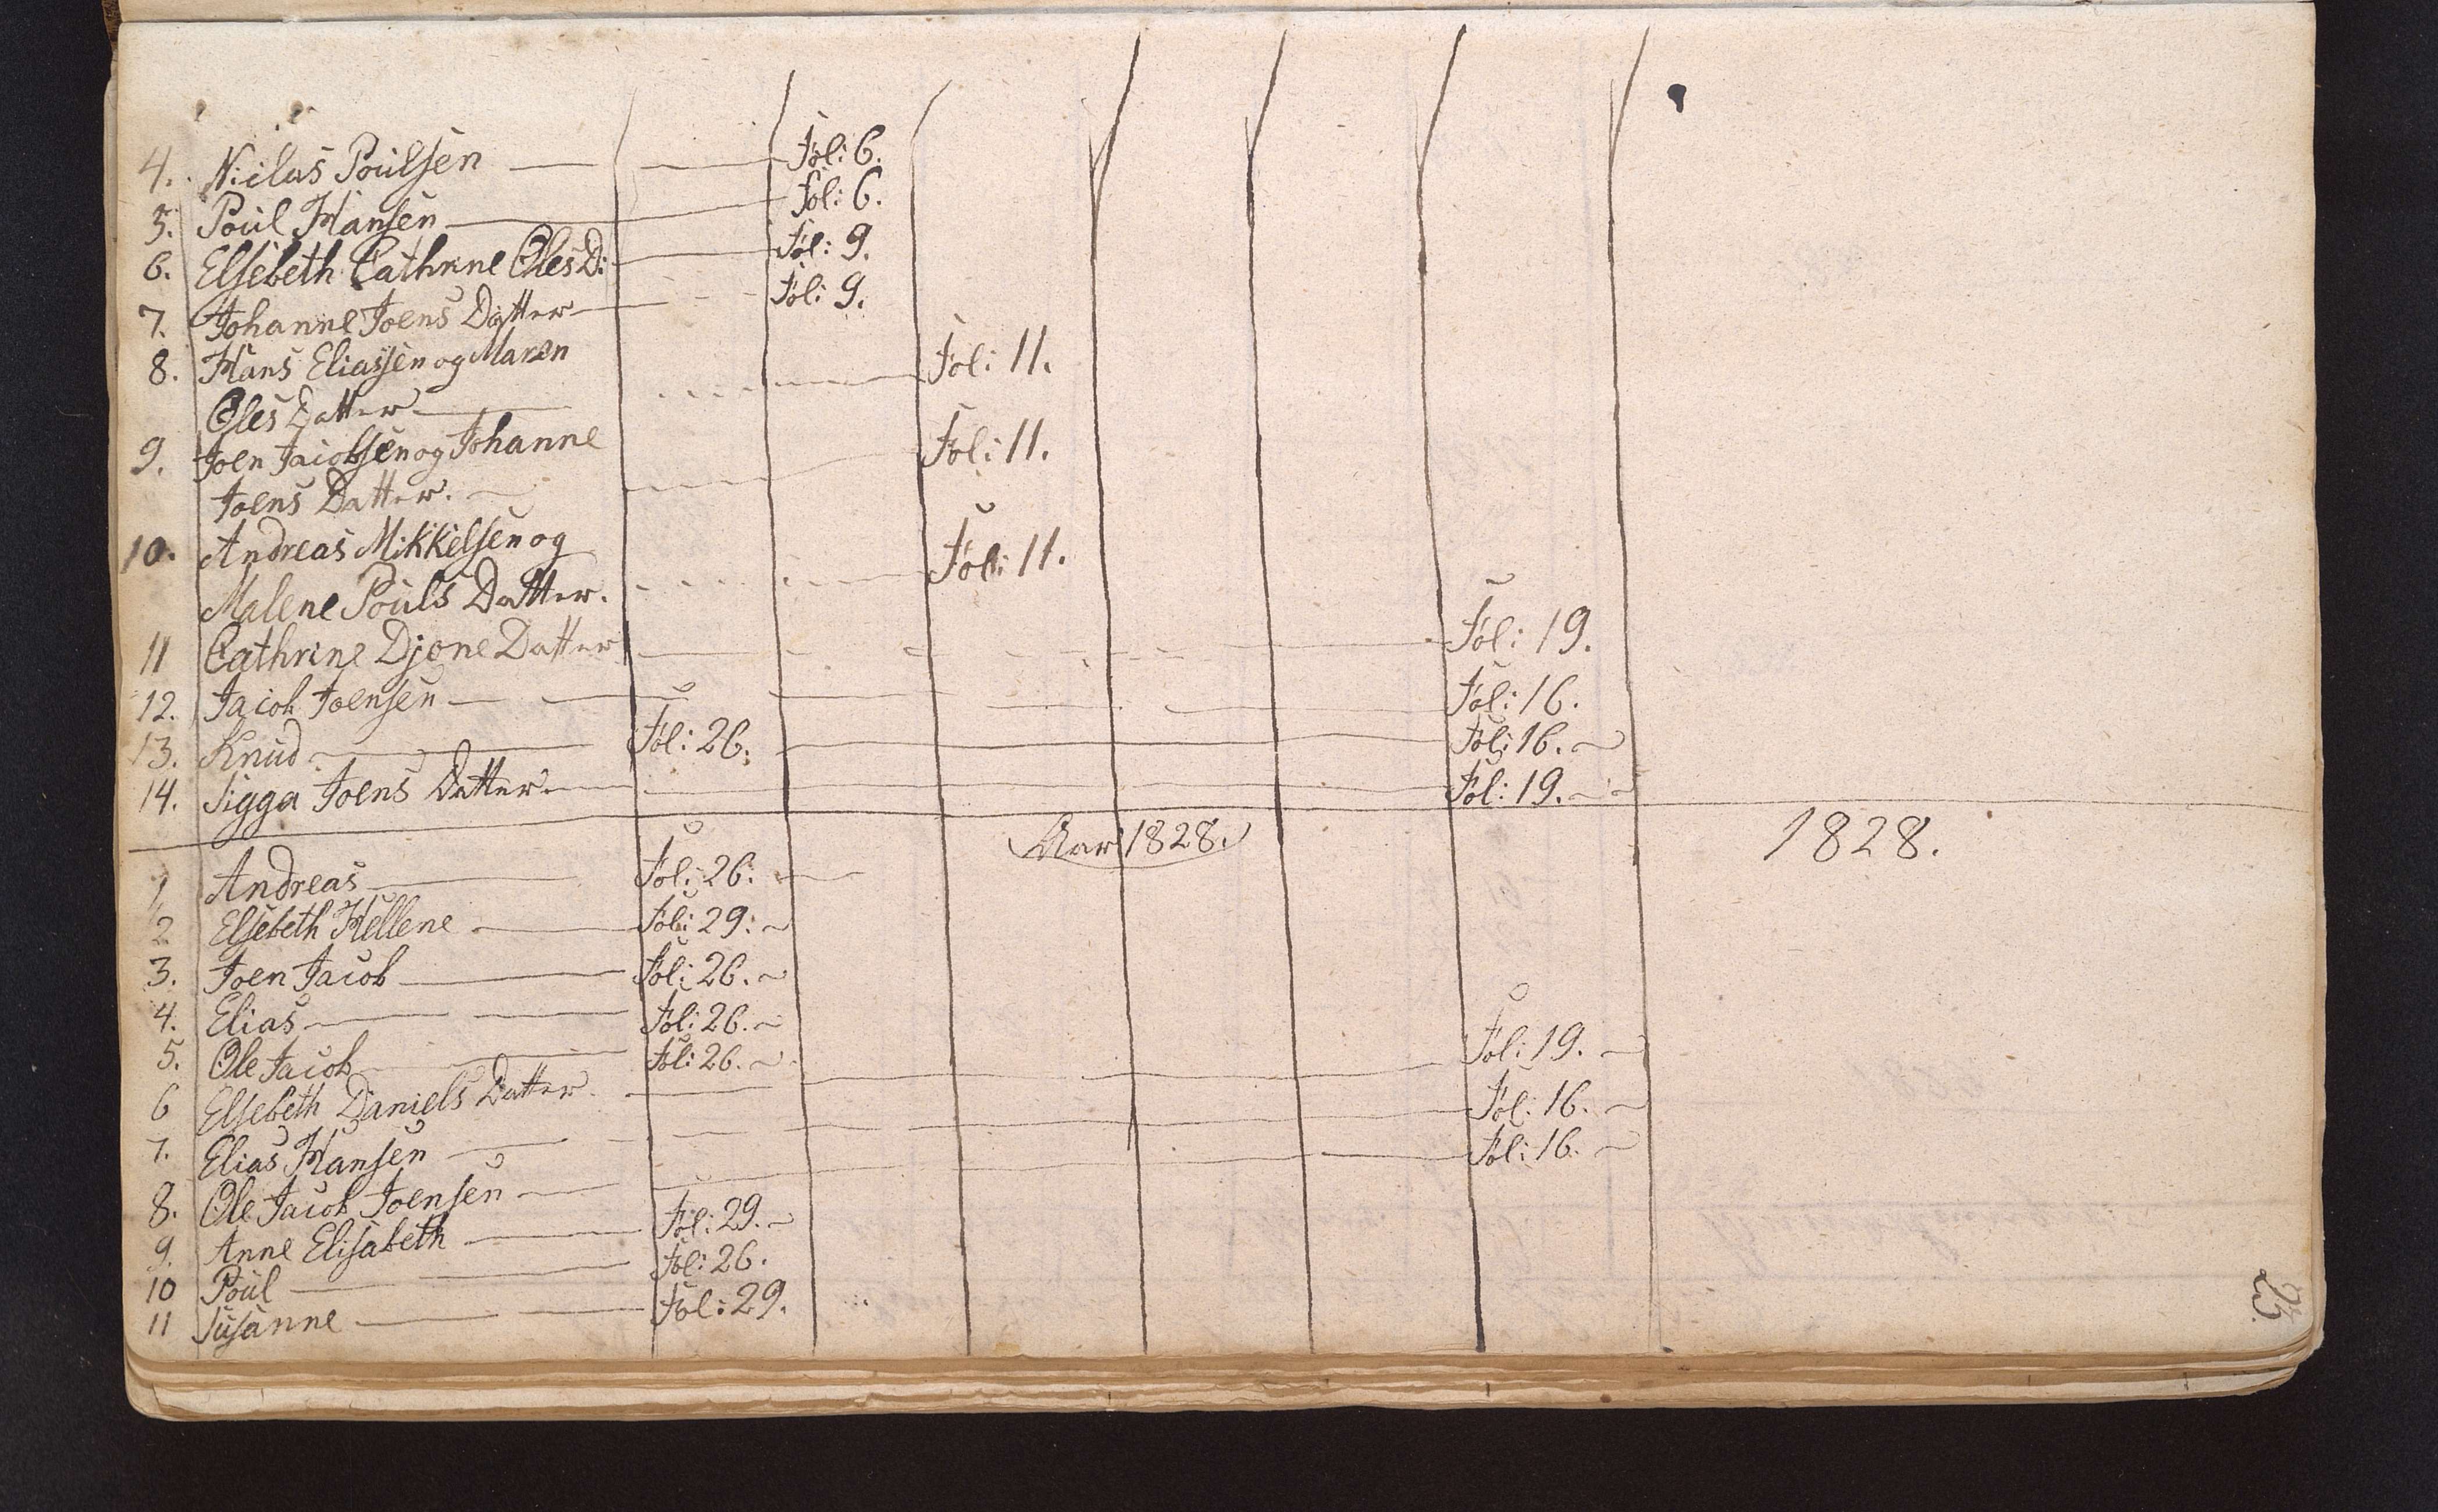 4. Niclas Poulsen Fol: 6.
5. Poul Hansen Fol: 6.
6. Elsebeth Cathrine OlesD: Fol: 9.
7. Johanne Joens Datter Fol: 9.
8. Hans Eliassen og Maren
Oles Datter Fol: 11.
9. Joen Jacobsen og Johanne
Joens Datter. Fol: 11.
10. Andreas Mikkelsen og
Malene Pouls Datter. Fol: 11.
11 Cathrine Djone Datter Fol: 19.
12. Jacob Joensen Fol: 16.
13. Knud Fol: 26. Fol: 16.
14. Sigga Joens Datter Fol: 19.
Aar 1828. 1828.
1 Andreas Fol: 26.
2 Elsebeth Hellene Fol: 29.
3. Joen Jacob Fol: 26.
4. Elias Fol: 26.
5. Ole Jacob Fol: 26.
6 Elsebeth Daniels Datter Fol: 19.
7. Elias Hansen Fol: 16.
8. Ole Jacob Joensen Fol: 16.
9. Anne Elisabeth Fol: 29.
10 Poul Fol: 26.
11 Susanne Fol: 29.